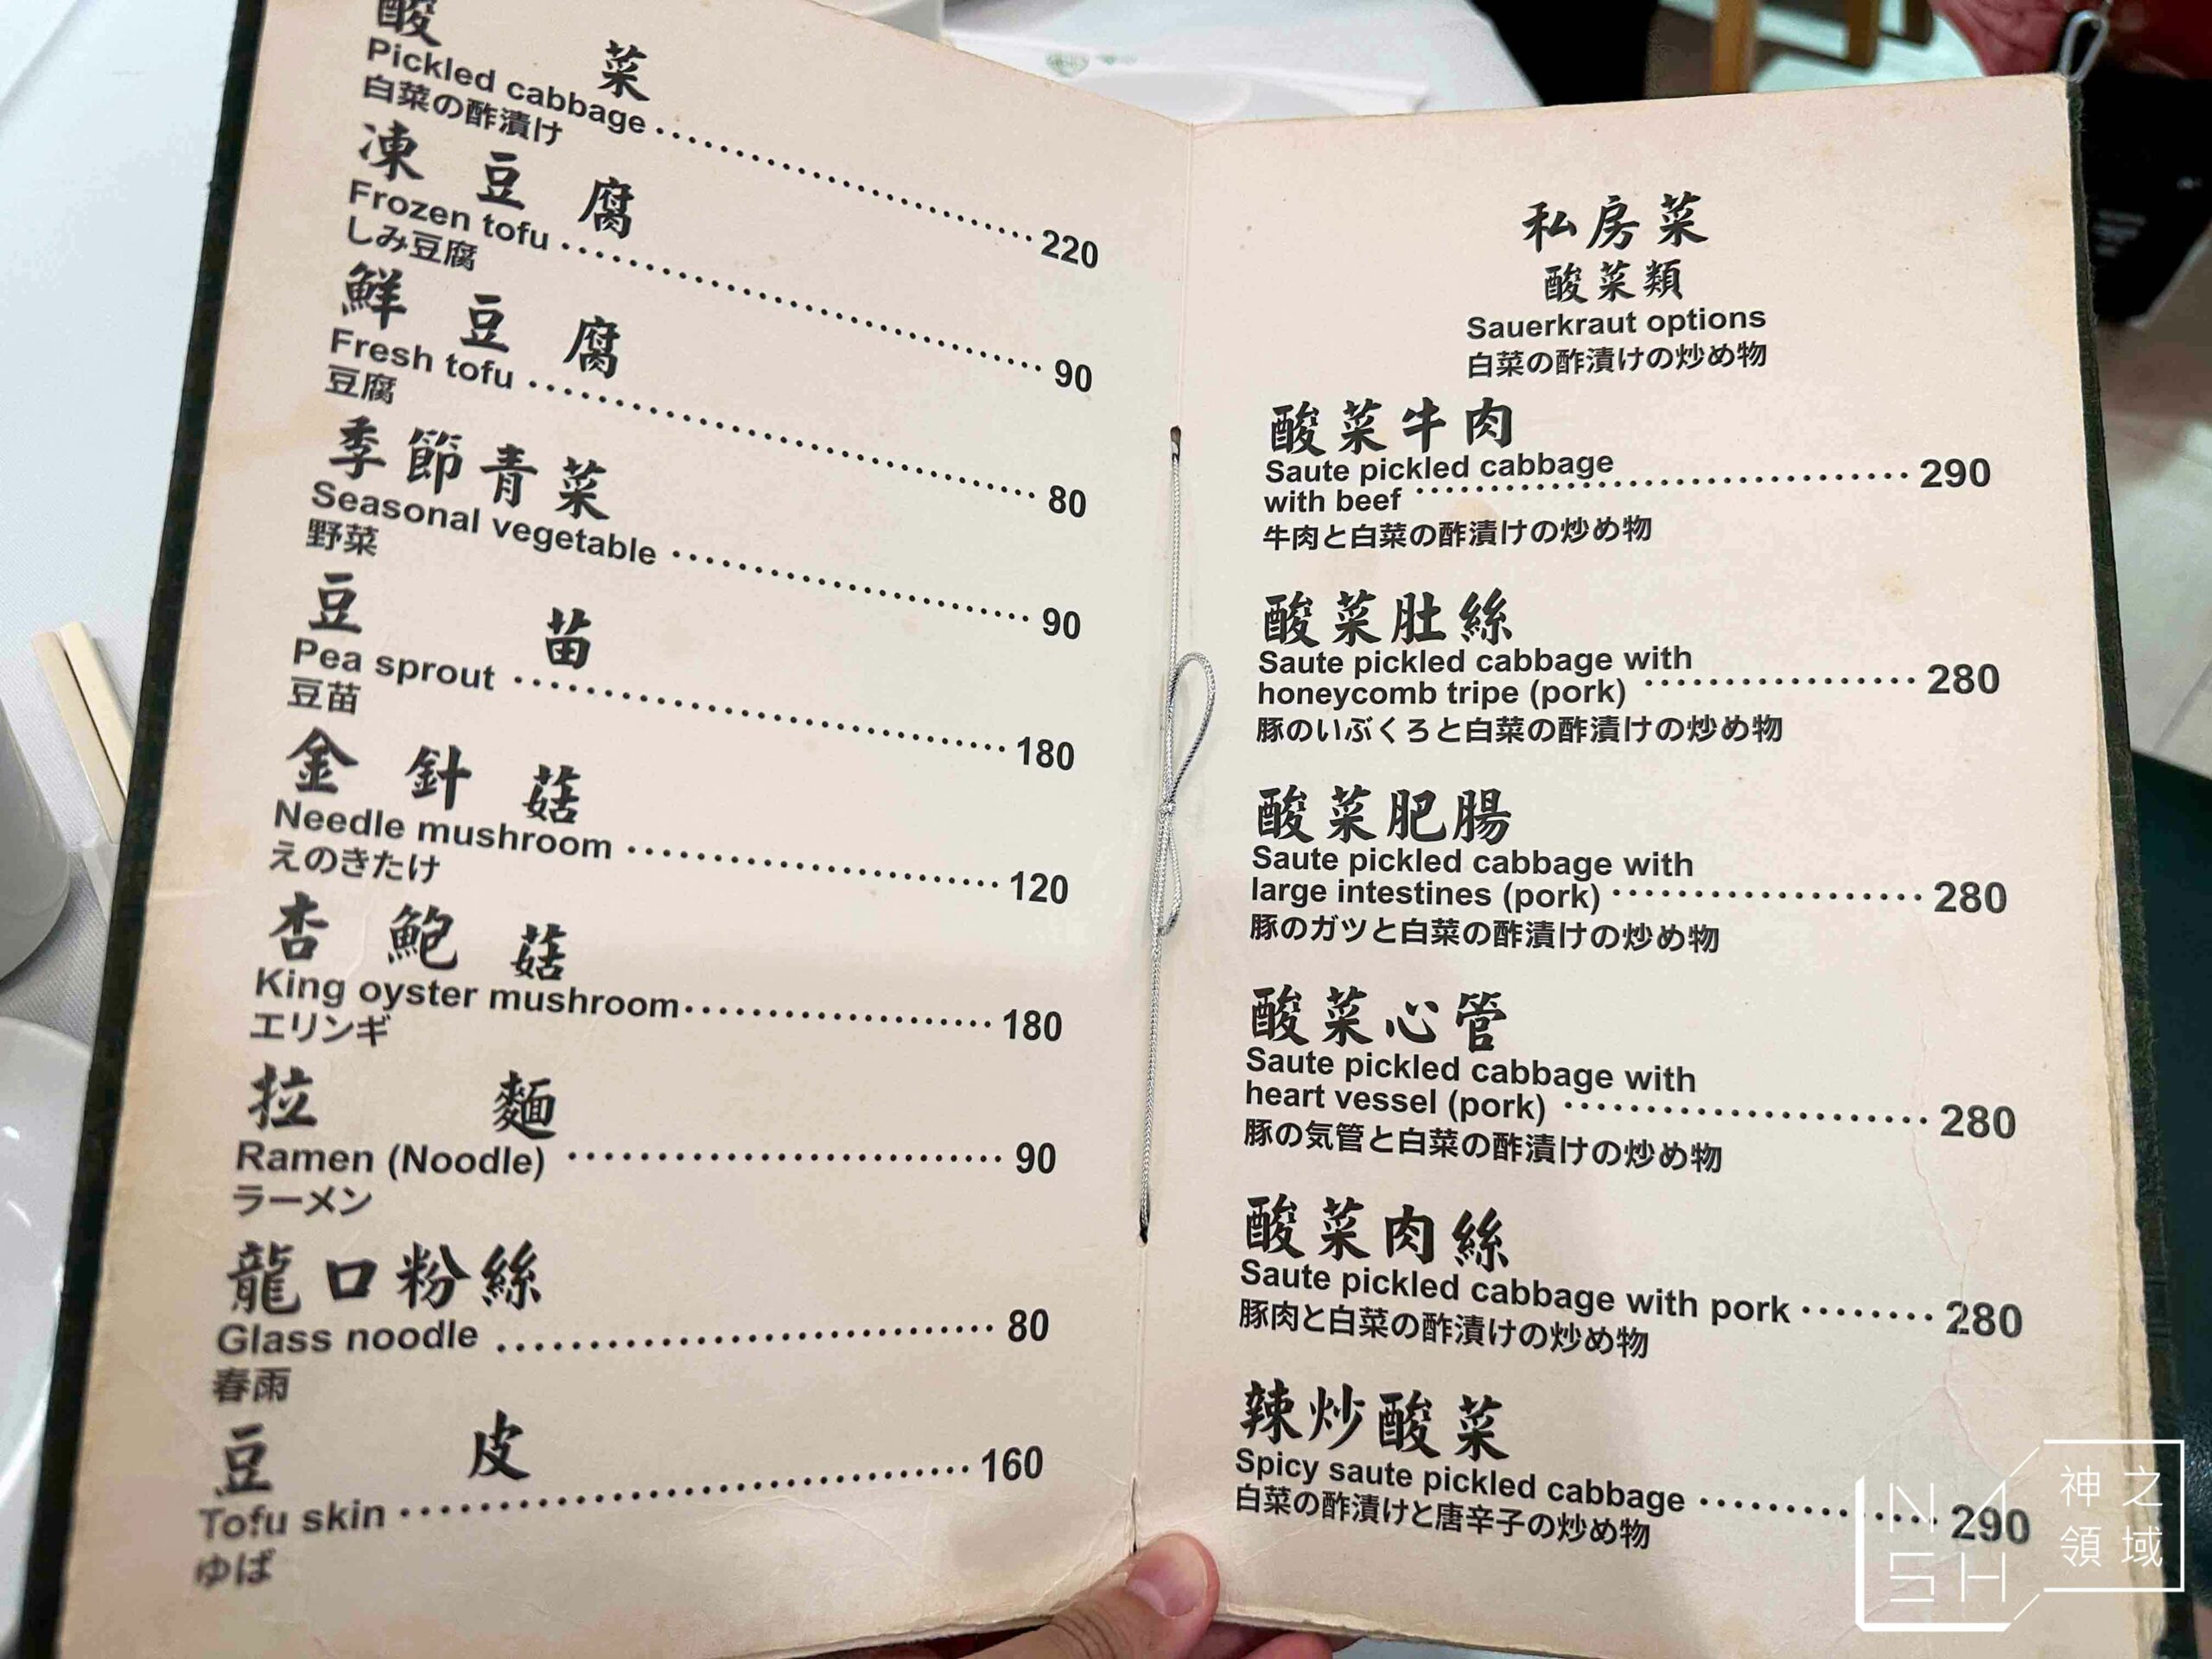 酸菜
Pickled cabbage 220
白菜の酢漬け
凍豆腐
Frozen tofu 90
しみ豆腐
鮮豆腐
Fresh tofu 80
豆腐
季節青菜
Seasonal vegetable 90
野菜
豆苗
Pea sprout 180
豆苗
金針菇
Needle mushroom 120
えのきたけ
杏鮑菇
King oyster mushroom 180
エリンギ
拉麵
Ramen (Noodle) 90
ラーメン
龍口粉絲
Glass noodle 80
春雨
豆皮
Tofu skin 160
ゆば
私房菜
酸菜類
Sauerkraut options
白菜の酢漬けの炒め物
酸菜牛肉
Saute pickled cabbage
with beef 290
牛肉と白菜の酢漬けの炒め物
酸菜肚絲
Saute pickled cabbage with
honeycomb tripe (pork) 280
豚のいぶくろと白菜の酢漬けの炒め物
酸菜肥腸
Saute pickled cabbage with
large intestines (pork) 280
豚のガツと白菜の酢漬けの炒め物
酸菜心管
Saute pickled cabbage with
heart vessel (pork) 280
豚の気管と白菜の酢漬けの炒め物
酸菜肉絲
Saute pickled cabbage with pork 280
豚肉と白菜の酢漬けの炒め物
辣炒酸菜
Spicy saute pickled cabbage 290
白菜の酢漬けと唐辛子の炒め物
NASH
神之
領域